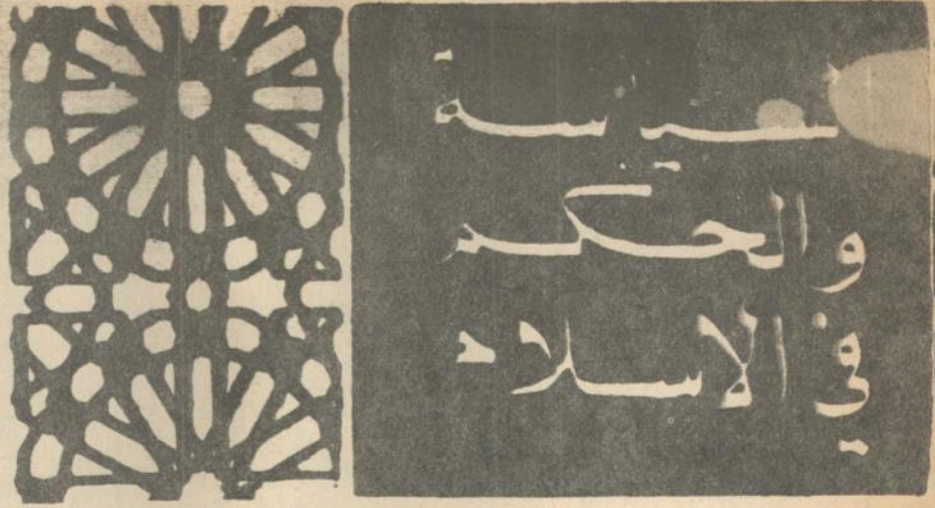 والحكم
في الاسلام